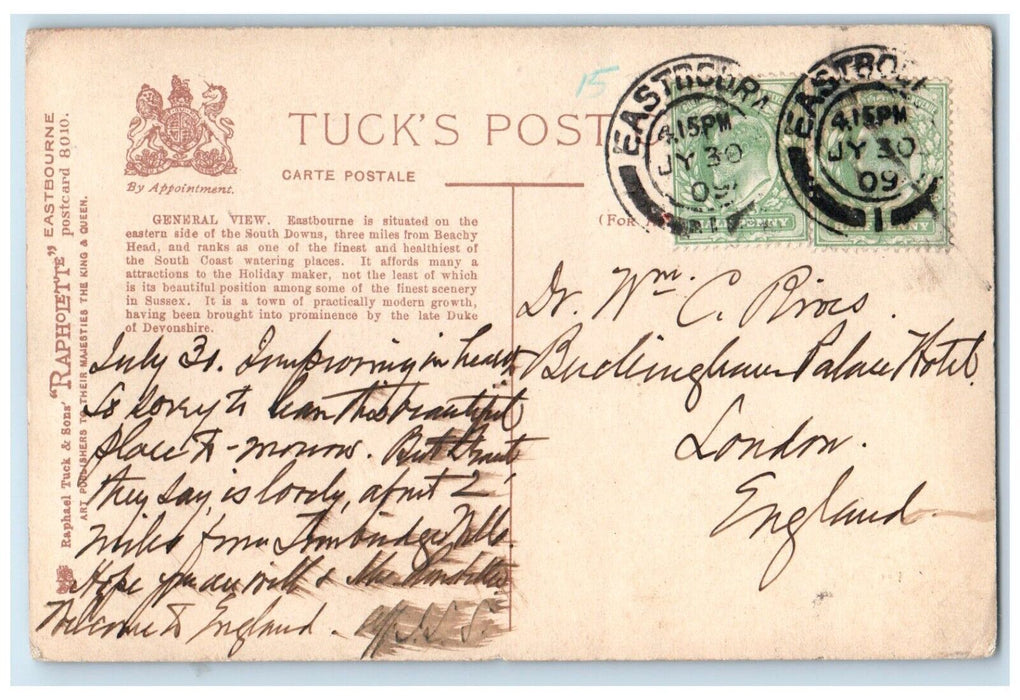 EASTBOURNE
"RAPHOLETTE" postcard 8010.
Raphael Tuck & Sons'
ART PUBLISHERS TO THEIR MAJESTIES THE KING & QUEEN.
By Appointment.
TUCK'S POST
CARTE POSTALE
15
(For
EASTBOUR
4.15PM
JY 30
09
1
EASTBOU
4.15PM
JY 30
09
1
GENERAL VIEW. Eastbourne is situated on the
eastern side of the South Downs, three miles from Beachy
Head, and ranks as one of the finest and healthiest of
the South Coast watering places. It affords many a
attractions to the Holiday maker, not the least of which
is its beautiful position among some of the finest scenery
in Sussex. It is a town of practically modern growth,
having been brought into prominence by the late Duke
of Devonshire.
July 30. Improving in health
So sorry to leave this beautiful
place to-morrow. But
they say, is lovely, about 2
miles from Tunbridge Wells.
Hope you are well & Mrs.
Welcome to England.
Dr. Wm. C. Rives.
Buckingham Palace Hotel.
London.
England.